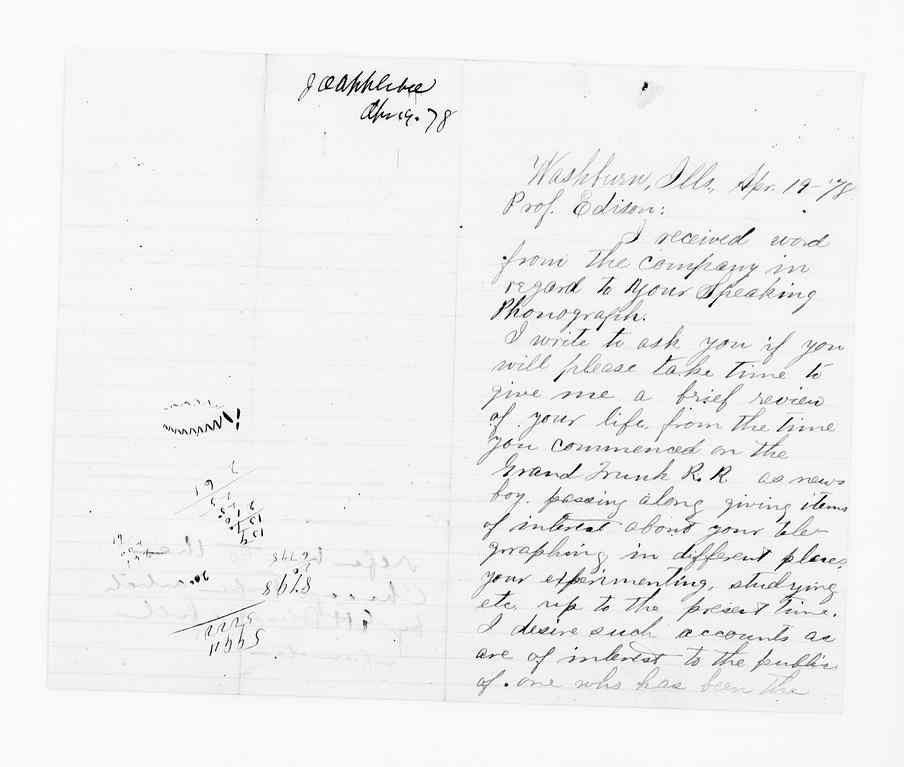 J O Applebee
Apr 19. 78
Washburn, Ills, Apr. 19-'78
Prof. Edison:
I received word
from the company in
regard to your Speaking
Phonograph.
I write to ask you if you
will please take time to
give me a brief review
of your life, from the time
you commenced on the
Grand Trunk R. R. as news
boy, passing along giving items
of interest about your tele-
graphing in different places,
your experimenting, studying
etc. up to the present time.
I desire such accounts as
are of interest to the public
of one who has been the
8198
5994